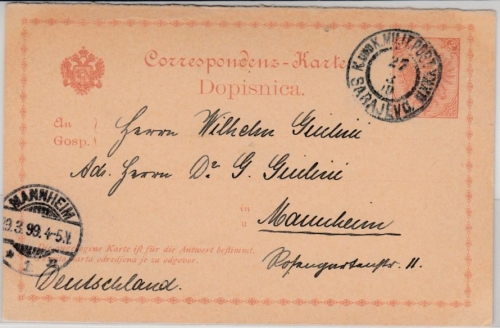 Correspondenz-Karte
Dopisnica.
K.UND K. MILIT. POST
27
3
SARAJEVO
An
Gosp.
Herrn Wilhelm Giulini
Adr. Herrn Dr G. Giulini
in
u
Mannheim
MANNHEIM
29.3.99.4-5.N.
* 1
Karte ist für die Antwort bestimmt.
karta odredjena je za odgovor.
Rosengartenstr. 11.
Deutschland.